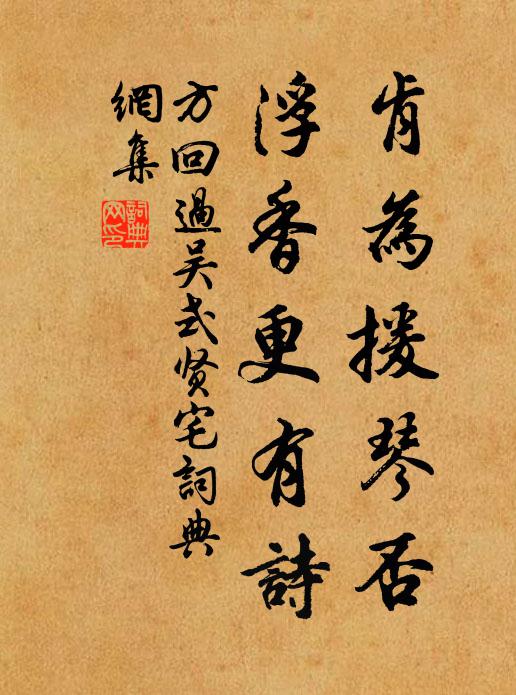 肯為援琴否
浮香更有詩
方回過吴式贤宅詞典
網集
詞典网印